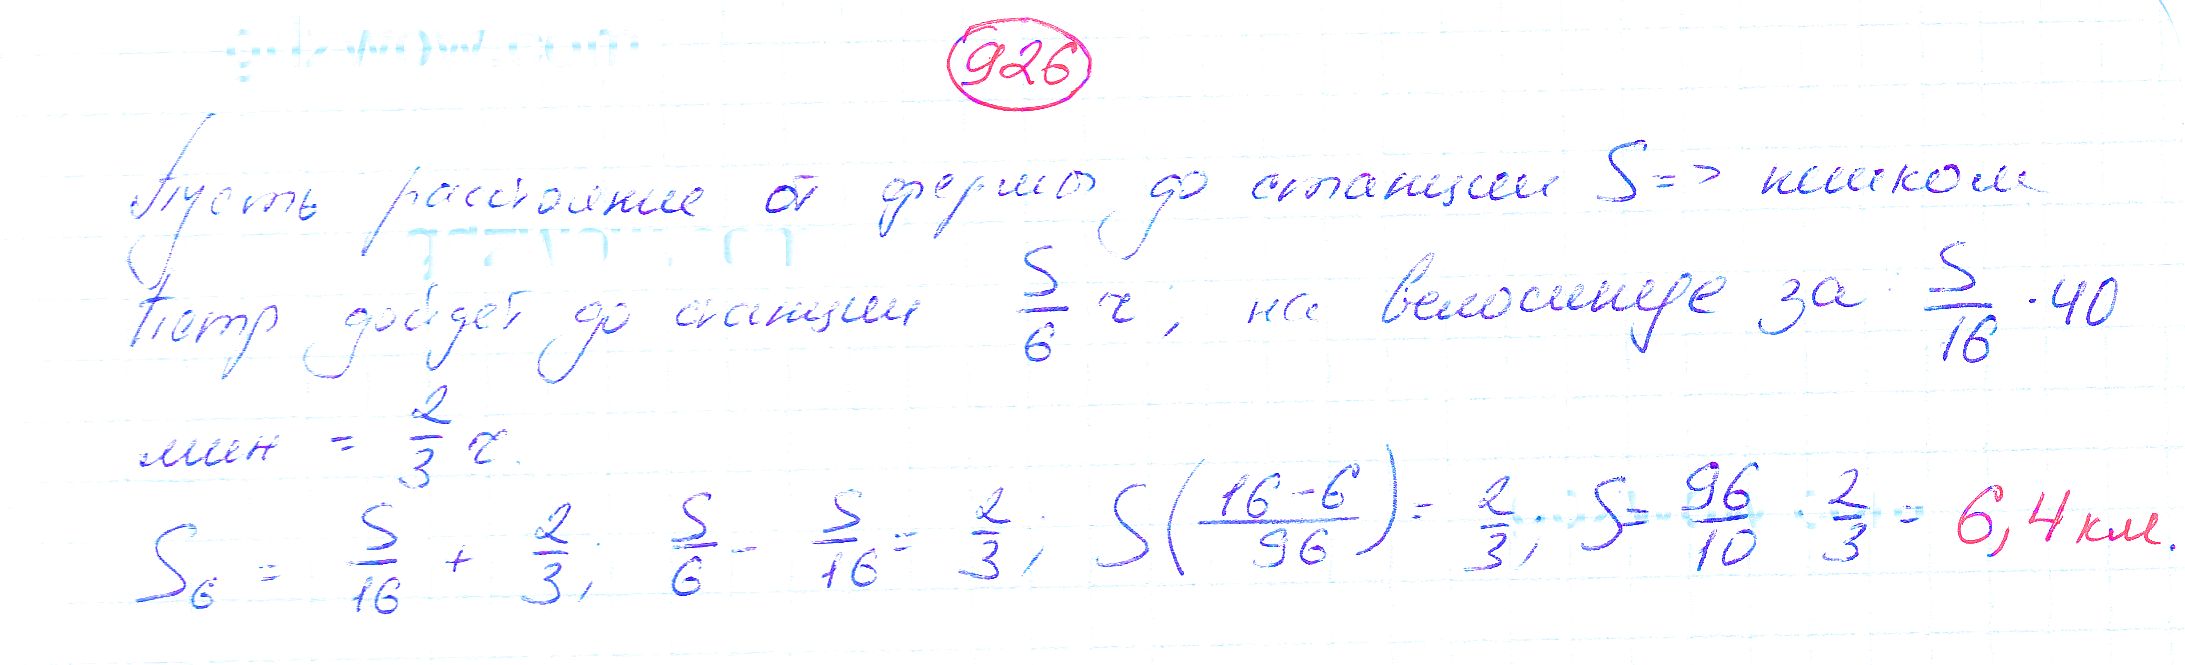 926
Пусть расстояние от фермы до станции S => пешком
Петр дойдет до станции S/6 ч, на велосипеде за S/16 · 40
мин = 2/3 ч.
S6 = S/16 + 2/3; S/6 - S/16 = 2/3; S((16-6)/96) = 2/3; S = 96/10 · 2/3 = 6,4 км.